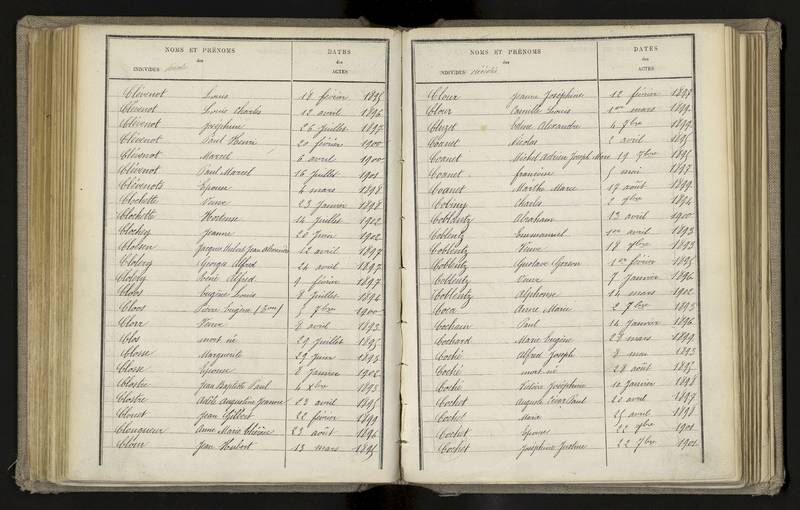 NOMS ET PRÉNOMS
des
INDIVIDUS décédés
DATES
des
ACTES
Clévenot Louis 18 février 1895
Clévenot Louis Charles 12 avril 1896
Clévenot Joséphine 26 Juillet 1897
Clévenot Paul Henri 20 février 1900
Clévenot Marcel 6 avril 1900
Clévenot Paul Marcel 16 Juillet 1901
Clévenots Epouse 4 mars 1898
Clochette Veuve 23 Janvier 1898
Clochette Hortense 14 Juillet 1902
Jeanne 20 Juin 1902
Jacques Hubert Jean 12 avril 1897
Georges Alfred 24 avril 1897
René Alfred 9 février 1897
Cloos Eugène Louis 8 Juillet 1894
Cloos Pierre Eugène 5 7bre 1900
Veuve 8 avril 1893
Clos mort né 29 Juillet 1895
Closse Marguerite 29 Juin 1893
Closse Epouse 8 Janvier 1902
Jean Baptiste Paul 4 Xbre 1893
Adèle Augustine Jeanne 23 avril 1895
Clouet Jean Gilbert 22 février 1899
Anne Marie 23 août 1896
Jean Hubert 13 mars 1895
NOMS ET PRÉNOMS
des
INDIVIDUS décédés
DATES
des
ACTES
Clour Jeanne Joséphine 12 février 1897
Clour Camille Louis 1er mars 1899
Cluzet Alexandre 4 7bre 1899
Coanet Nicolas 2 avril 1895
Coanet Michel Adrien Joseph Marie 19 1895
Coanet françoise 5 mai 1897
Coanet Marthe Marie 17 août 1899
Charles 2 1894
Coblentz Abraham 13 avril 1900
Coblentz Emmanuel 1er avril 1893
Coblentz Veuve 18 1893
Coblentz Gustave 1er février 1895
Coblentz Veuve 7 Janvier 1896
Coblentz Alphonse 14 mars 1902
Coca Anne Marie 2 7bre 1893
Cochain Paul 14 Janvier 1896
Cochard Marie Eugène 28 mars 1899
Coché Alfred Joseph 8 mai 1893
Coché mort né 28 août 1895
Coché Joséphine 10 Janvier 1898
Cochet Auguste César Paul 20 avril 1897
Cochet Marie 25 avril 1898
Cochet Epouse 22 1901
Cochet Joséphine Justine 22 7bre 1901